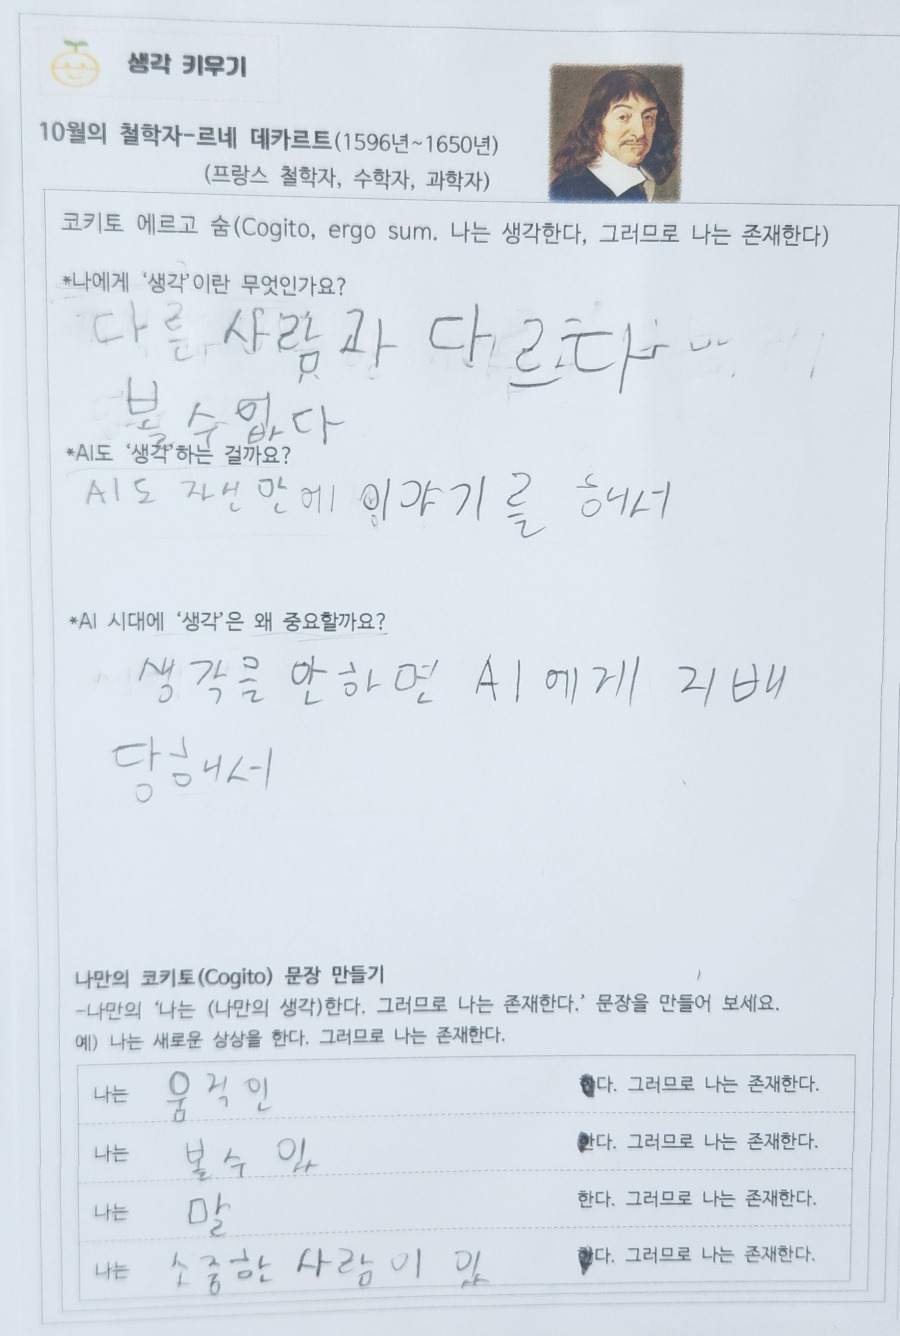 생각 키우기
10월의 철학자-르네 데카르트(1596년~1650년)
(프랑스 철학자, 수학자, 과학자)
코키토 에르고 숨(Cogito, ergo sum. 나는 생각한다, 그러므로 나는 존재한다)
*나에게 '생각'이란 무엇인가요?
다를 사람과 다르다
볼 수 없다
*AI도 '생각'하는 걸까요?
AI도 자낸만에 이야기를 해서
*AI 시대에 '생각'은 왜 중요할까요?
생각믈 안하면 AI에게 지배
당해서
나만의 코키토(Cogito) 문장 만들기
-나만의 '나는 (나만의 생각)한다. 그러므로 나는 존재한다.' 문장을 만들어 보세요.
예) 나는 새로운 상상을 한다. 그러므로 나는 존재한다.
나는 움직인 다. 그러므로 나는 존재한다.
나는 볼수 있 다. 그러므로 나는 존재한다.
나는 말 한다. 그러므로 나는 존재한다.
나는 소중한 사람이 있 다. 그러므로 나는 존재한다.